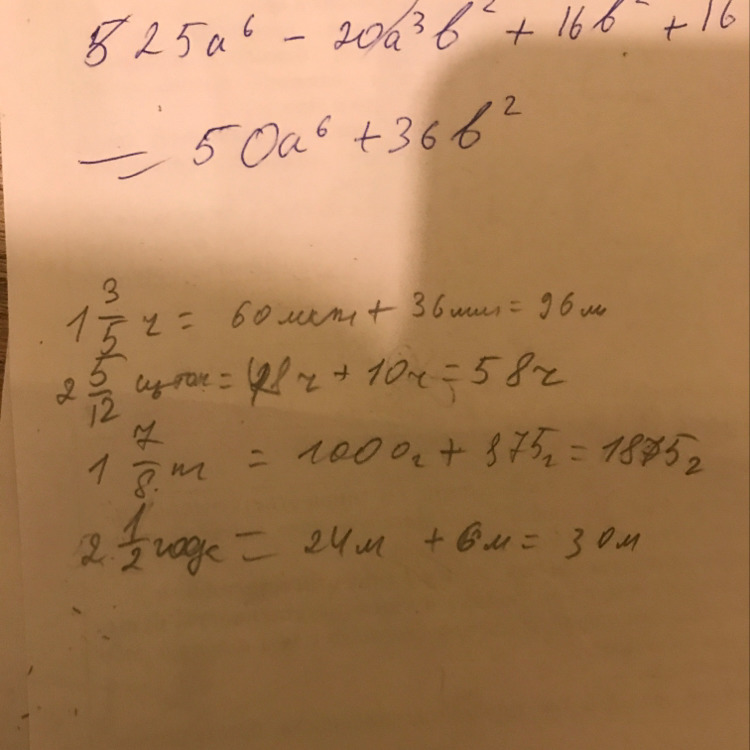 25a⁶ - 20a³b² + 16b² + 16
= 50a⁶ + 36b²
1 3/5 ч = 60 мин + 36 мин = 96 м
2 5/12 = 48ч + 10ч = 58ч
1 7/8 т = 1000г + 875г = 1875г
2 1/2 года = 24м + 6м = 30м